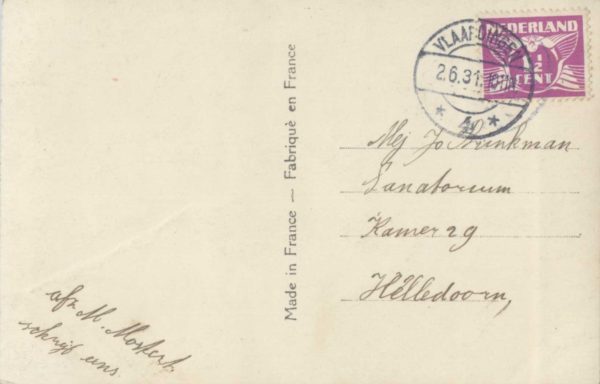 NEDERLAND
1/2
CENT
VLAARDINGEN
2.6.31.
* 40 *
Made in France — Fabriqué en France
Mej Jo Brinkman
Sanatorium
Kamer 29
Hélledoorn,
afz M. Mostert
schrijf eens.